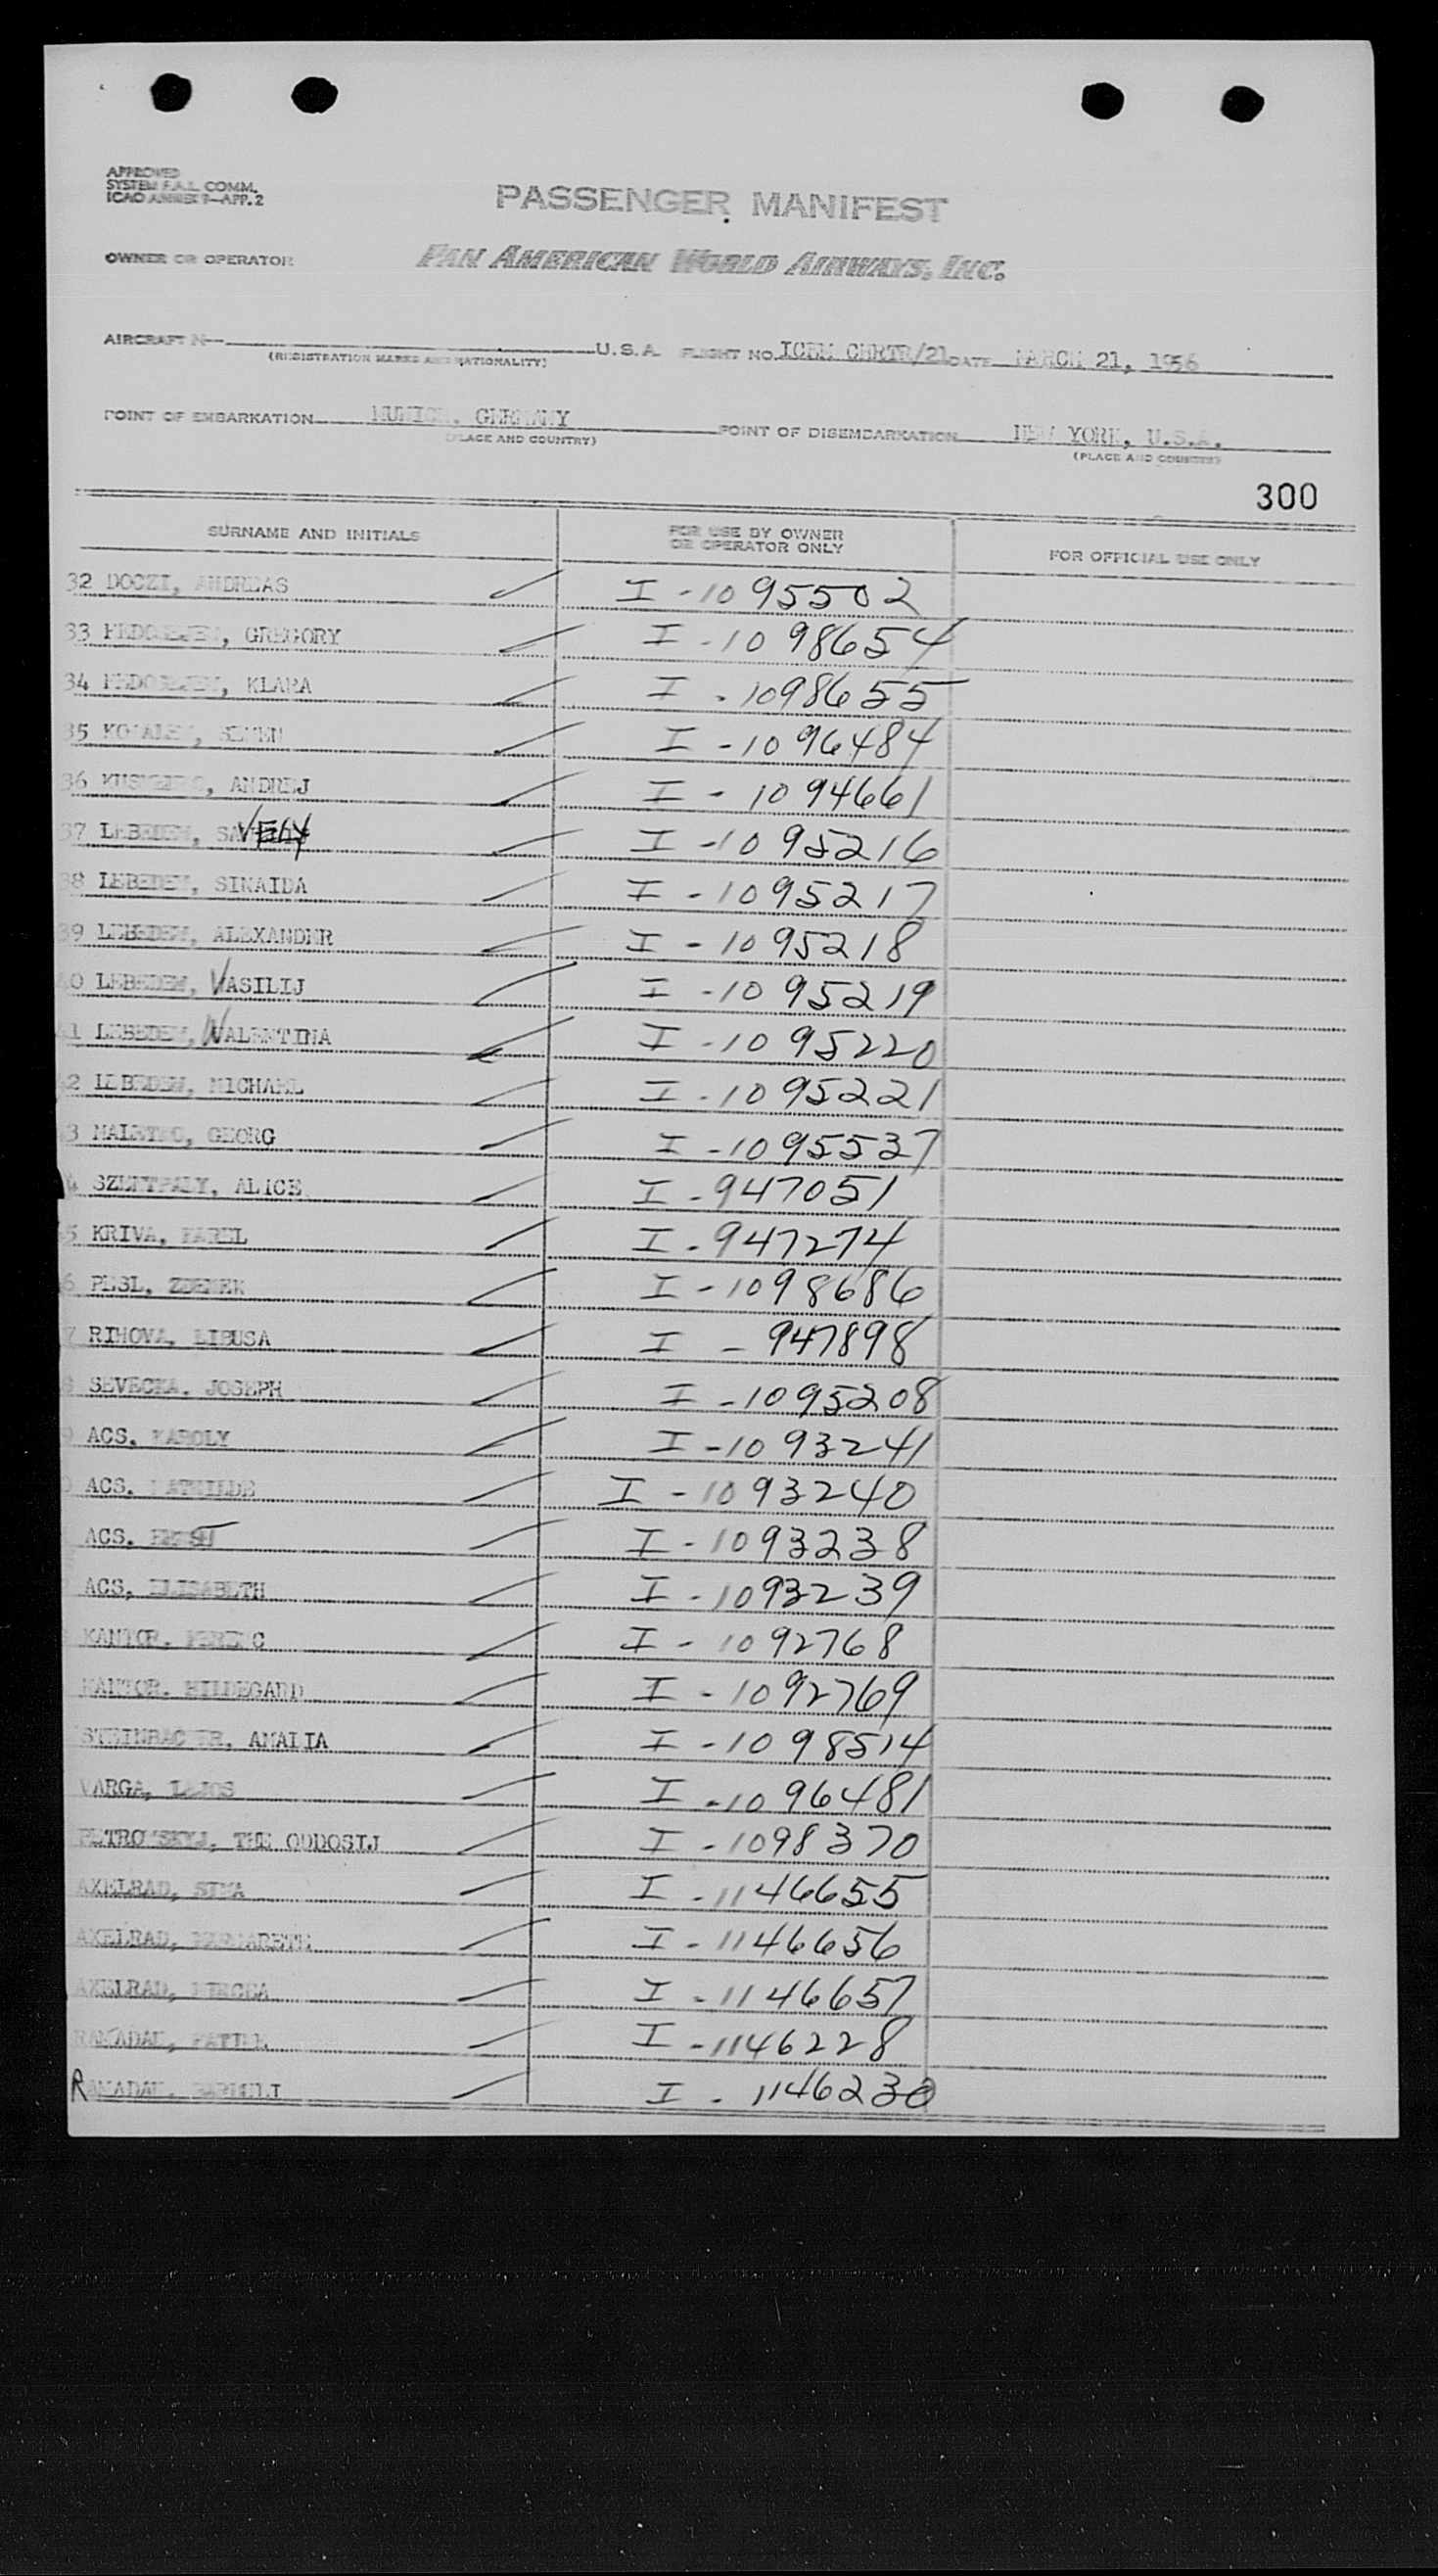 APPROVED
SYSTEM F.A.L. COMM.
ICAO ANNEX 9—APP. 2
PASSENGER MANIFEST
OWNER OR OPERATOR PAN AMERICAN WORLD AIRWAYS, INC.
AIRCRAFT N— U.S.A. FLIGHT NO. ICEM CHRTR/21 DATE MARCH 21, 1956
(REGISTRATION MARKS AND NATIONALITY)
POINT OF EMBARKATION MUNICH, GERMANY POINT OF DISEMBARKATION NEW YORK, U.S.A.
(PLACE AND COUNTRY) (PLACE AND COUNTRY)
300
SURNAME AND INITIALS FOR USE BY OWNER OR OPERATOR ONLY FOR OFFICIAL USE ONLY
32 DOCZI, ANDREAS I-1095502
33 GREGORY I-1098654
34 KLARA I-1098655
35 KOVALEW, SEMEN I-1096484
36 ANDREJ I-1094661
37 LEBEDEW, SAVELY I-1095216
38 LEBEDEW, SINAIDA I-1095217
39 LEBEDEW, ALEXANDER I-1095218
40 LEBEDEW, VASILIJ I-1095219
41 LEBEDEW, WALENTINA I-1095220
42 LEBEDEW, MICHAEL I-1095221
3 GEORG I-1095537
4 ALICE I-947051
5 KRIVA, KAREL I-947274
6 PESL, ZDENEK I-1098686
7 RIHOVA, LIBUSA I-947898
8 SEVECKA, JOSEPH I-1095208
9 ACS, KAROLY I-1093241
0 ACS, MATHILDE I-1093240
ACS, I-1093238
ACS, ELISABETH I-1093239
KANTOR, FERENC I-1092768
KANTOR, HILDEGARD I-1092769
STEINBACHER, AMALIA I-1098514
VARGA, LAJOS I-1096481
PETROWSKYJ, THE ODDOSIJ I-1098370
AXELRAD, SIMA I-1146655
AXELRAD, MARGARETE I-1146656
AXELRAD, MIRCEA I-1146657
RAMADAN, I-1146228
RAMADAN, I-1146230